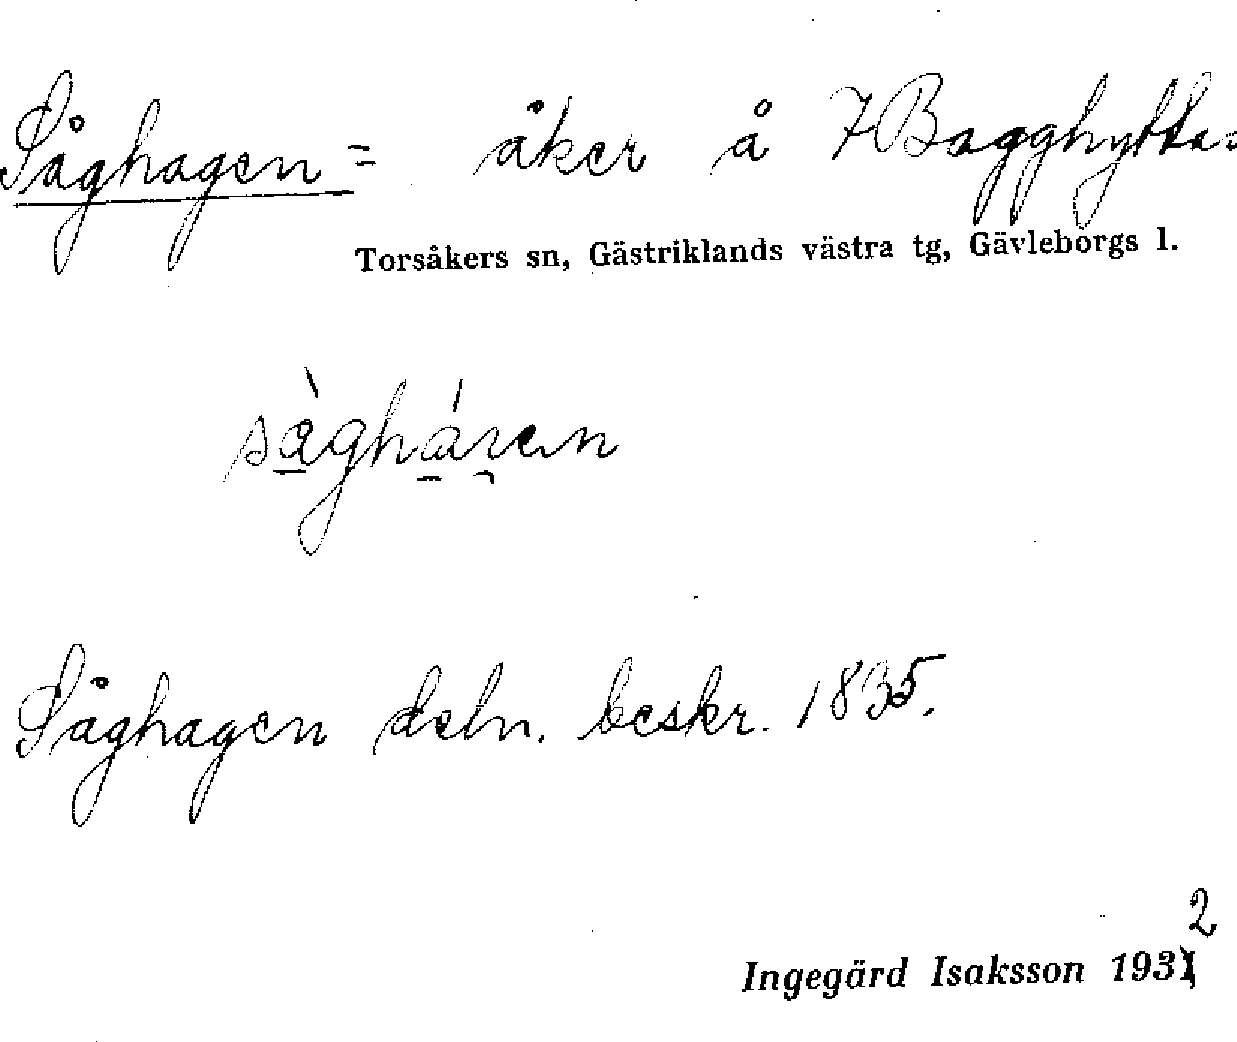 Såghagen = åker å 7 Bagghytta.
Torsåkers sn, Gästriklands västra tg, Gävleborgs l.
såghágen
Såghagen deln. beskr. 1835.
2
Ingegärd Isaksson 1931